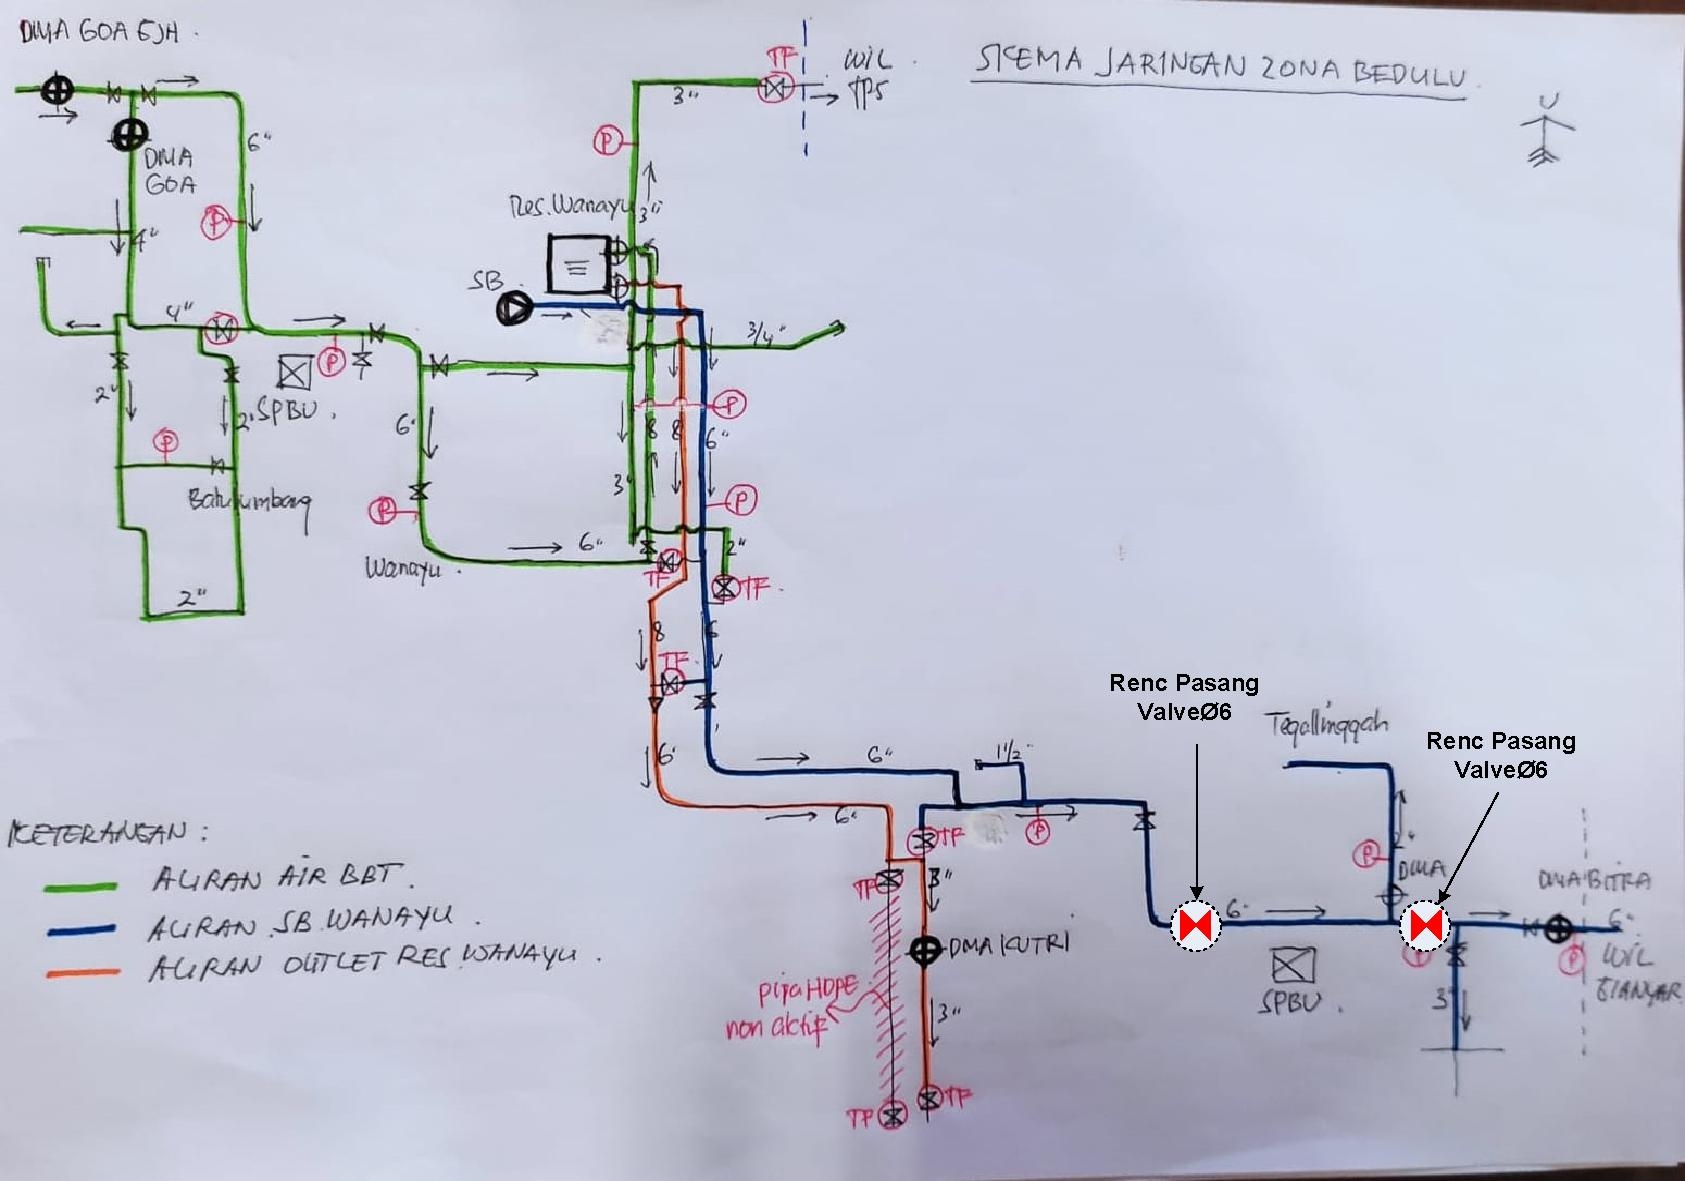 DMA GOA GJH .
SKEMA JARINGAN ZONA BEDULU
U
TF
WIL
TPS
3"
P
6"
DMA
GOA
Res. Wanayu
3"
P
4"
SB
4"
3/4"
P
2"
2"
SPBU .
6"
P
8
8
6"
P
Batulumbang
3
P
P
6"
2"
Wanayu .
TF
TF
2"
8
6
TF
Renc Pasang
ValveØ6
Tegallinggah
Renc Pasang
ValveØ6
6"
6"
1 1/2"
6"
TF
P
2"
P
DMA
KETERANGAN :
ALIRAN AIR BBT .
ALIRAN SB WANAYU .
ALIRAN OUTLET RES WANAYU .
TF
3"
6"
DMA BITRA
6"
DMA KUTRI
P
P
WIL
GIANYAR
pipa HDPE
non aktif
SPBU .
3"
3
TF
TF